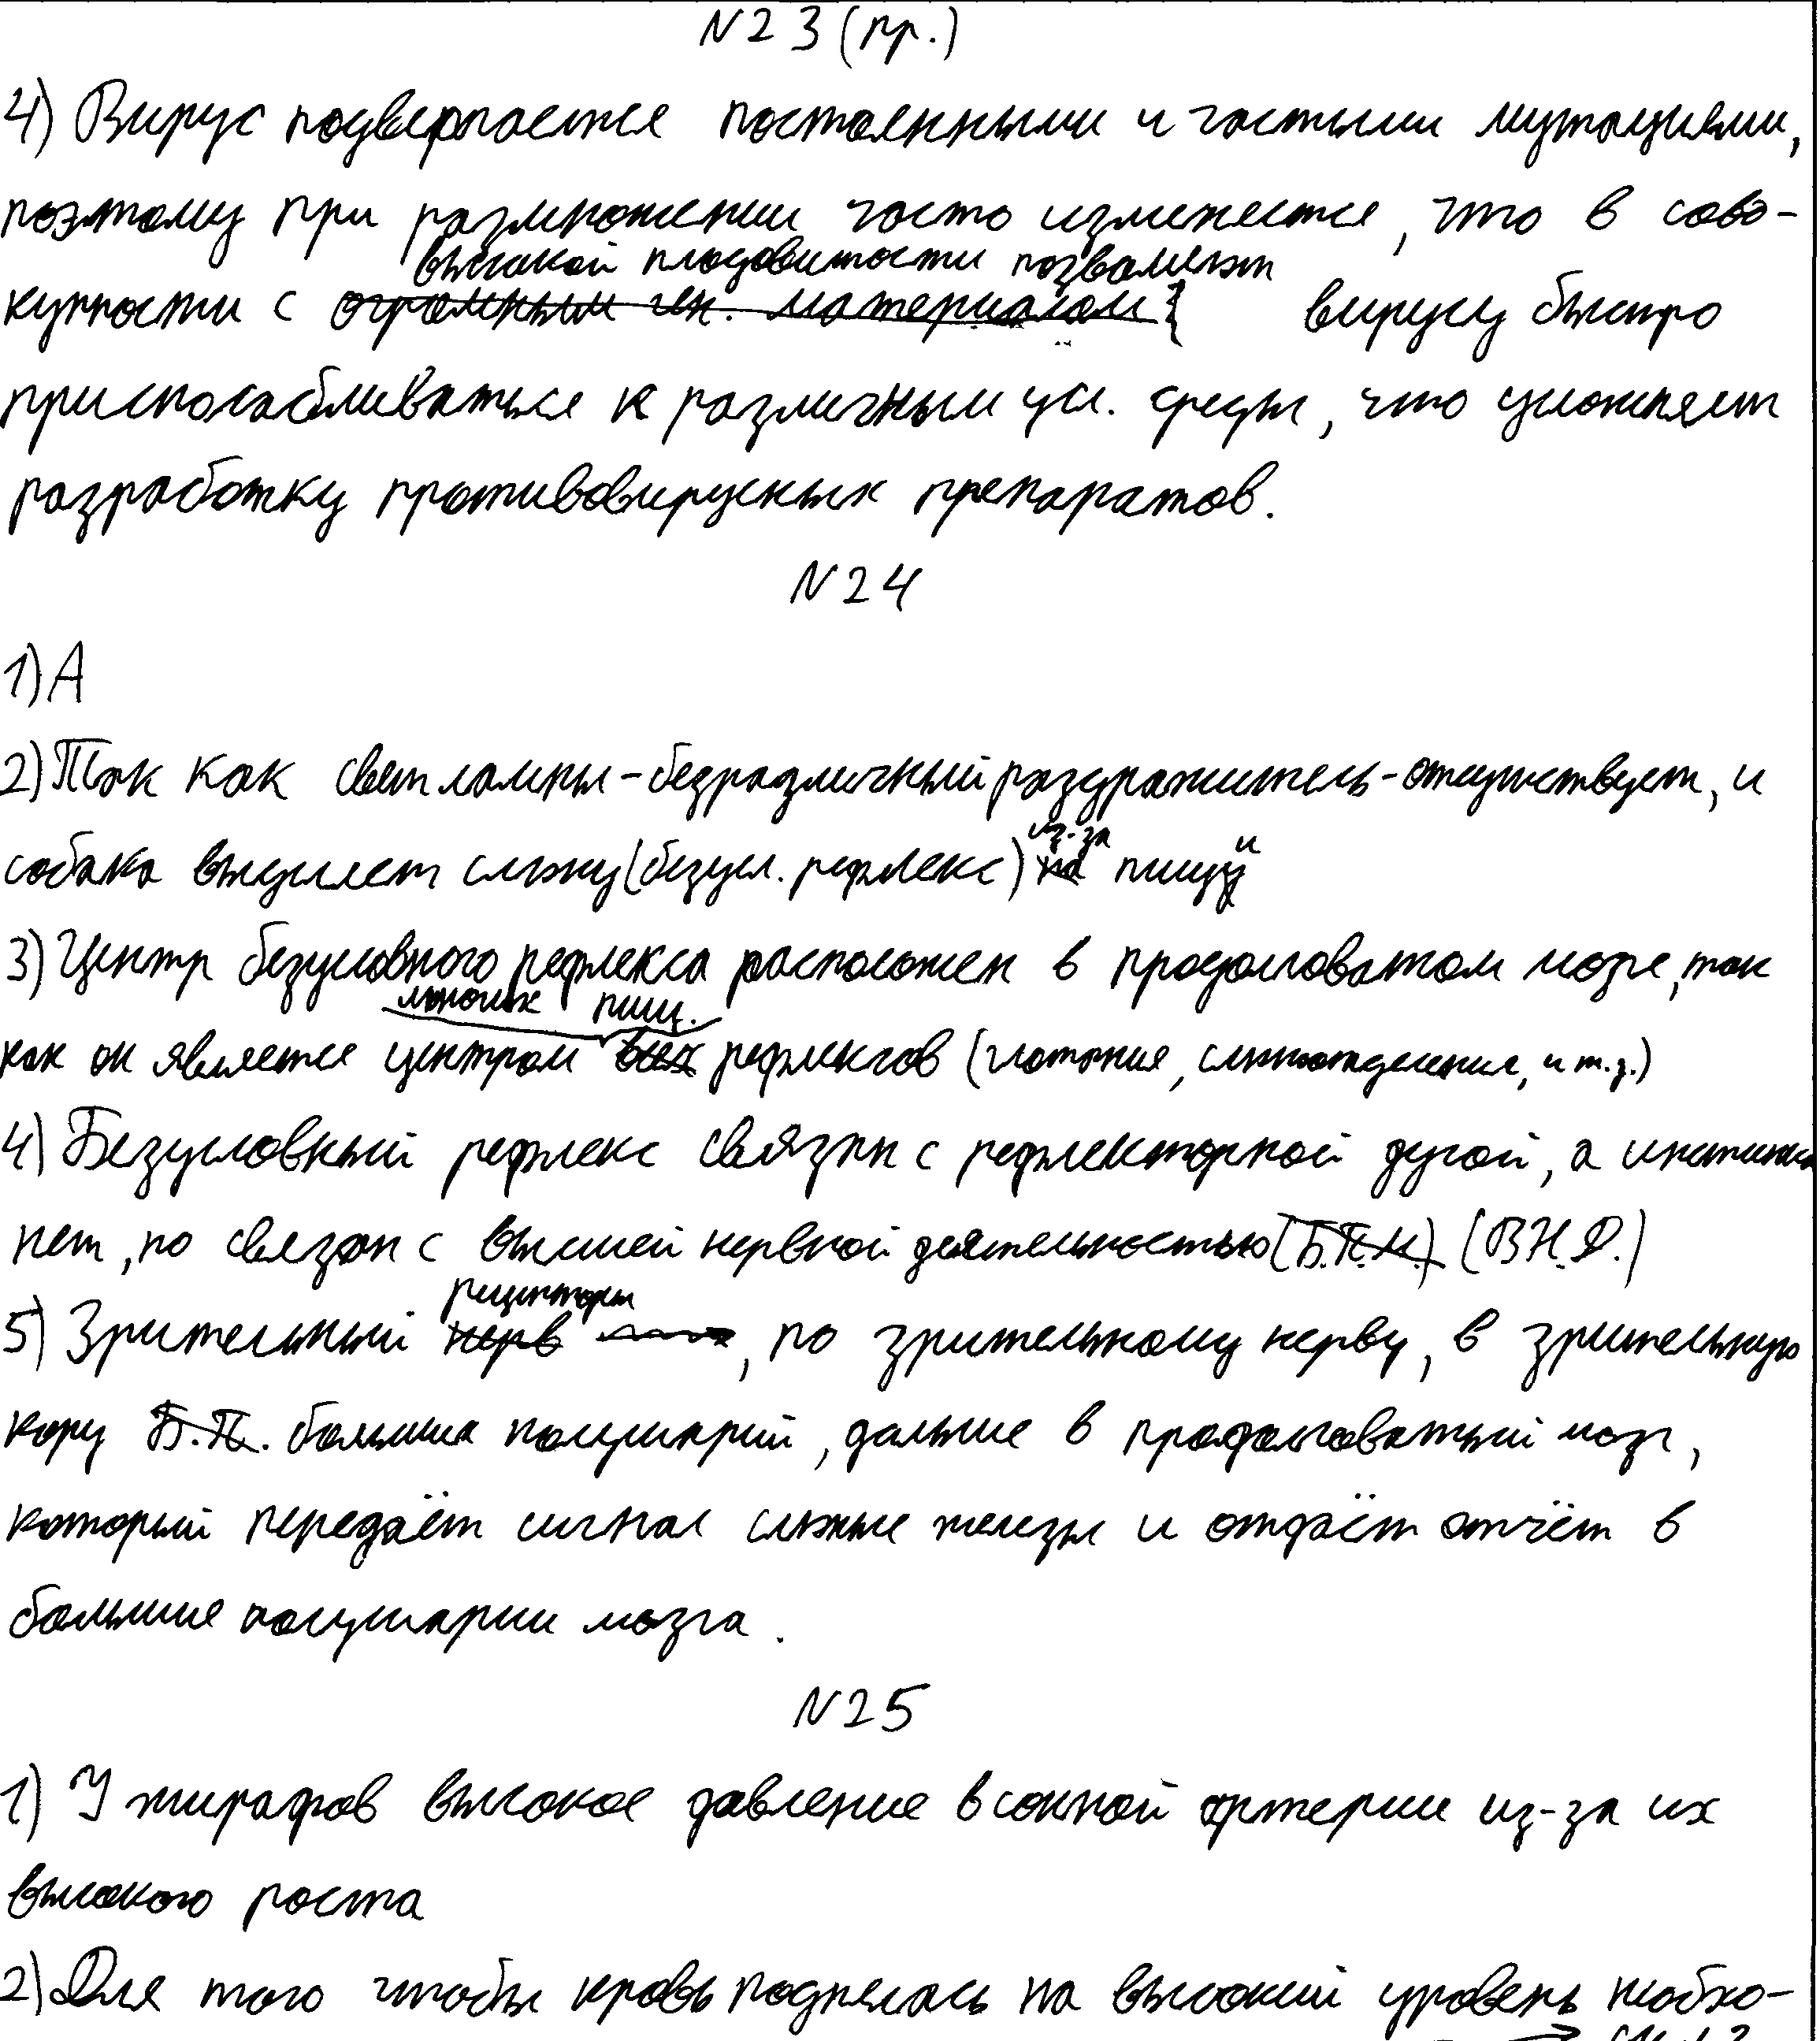 N23 (пр.)
4) Вирус подвергается постоянными и частыми мутациями,
поэтому при размножении часто изменяется, что в сово-
высокой плодовитости позволяет
купности с огромным ген. материалом вирусу быстро
приспосабливаться к различным усл. среды, что усложняет
разработку противовирусных препаратов.
N24
1) А
2) Так как свет лампы - безразличный раздражитель - отсутствует, и
из-за и
собака выделяет слюну (безусл. рефлекс) на пищу
3) Центр безусловного рефлекса расположен в продолговатом мозге, так
многих пищ.
как он является центром всех рефлексов (глотания, слюноотделения, и т.д.)
4) Безусловный рефлекс связан с рефлекторной дугой, а инстинкт
нет, но связан с высшей нервной деятельностью (Б.П.М.) (В.Н.Д.)
рецепторы
5) Зрительный нерв, по зрительному нерву, в зрительную
кору Б.П. больших полушарий, дальше в продолговатый мозг,
который передаёт сигнал слюные железы и отдаёт отчёт в
большие полушарии мозга.
N25
1) У жирафов высокое давление в сонной артерии из-за их
высокого роста
2) Для того чтобы кровь поднялась на высокий уровень необхо-